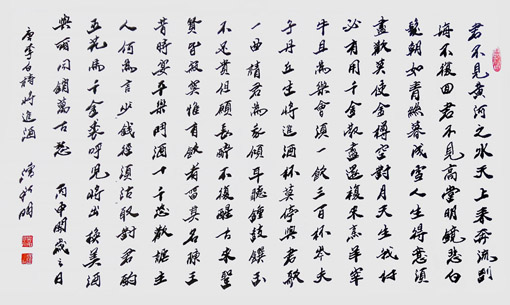 君不見黄河之水天上来奔流到
海不復回君不見高堂明鏡悲白
髮朝如青絲暮成雪人生得意須
盡歡莫使金樽空對月天生我材
必有用千金散盡還復来烹羊宰
牛且為樂會須一飲三百杯岑夫
子丹丘生將進酒杯莫停與君歌
一曲請君為我傾耳聽鐘鼓饌玉
不足貴但願長醉不復醒古来聖
賢皆寂莫惟有飲者留其名陳王
昔時宴平樂鬥酒十千恣歡謔主
人何為言少錢徑須沽取對君酌
五花馬千金裘呼兒將出換美酒
與爾同銷萬古愁 丙申 歲之日
唐李白詩將進酒